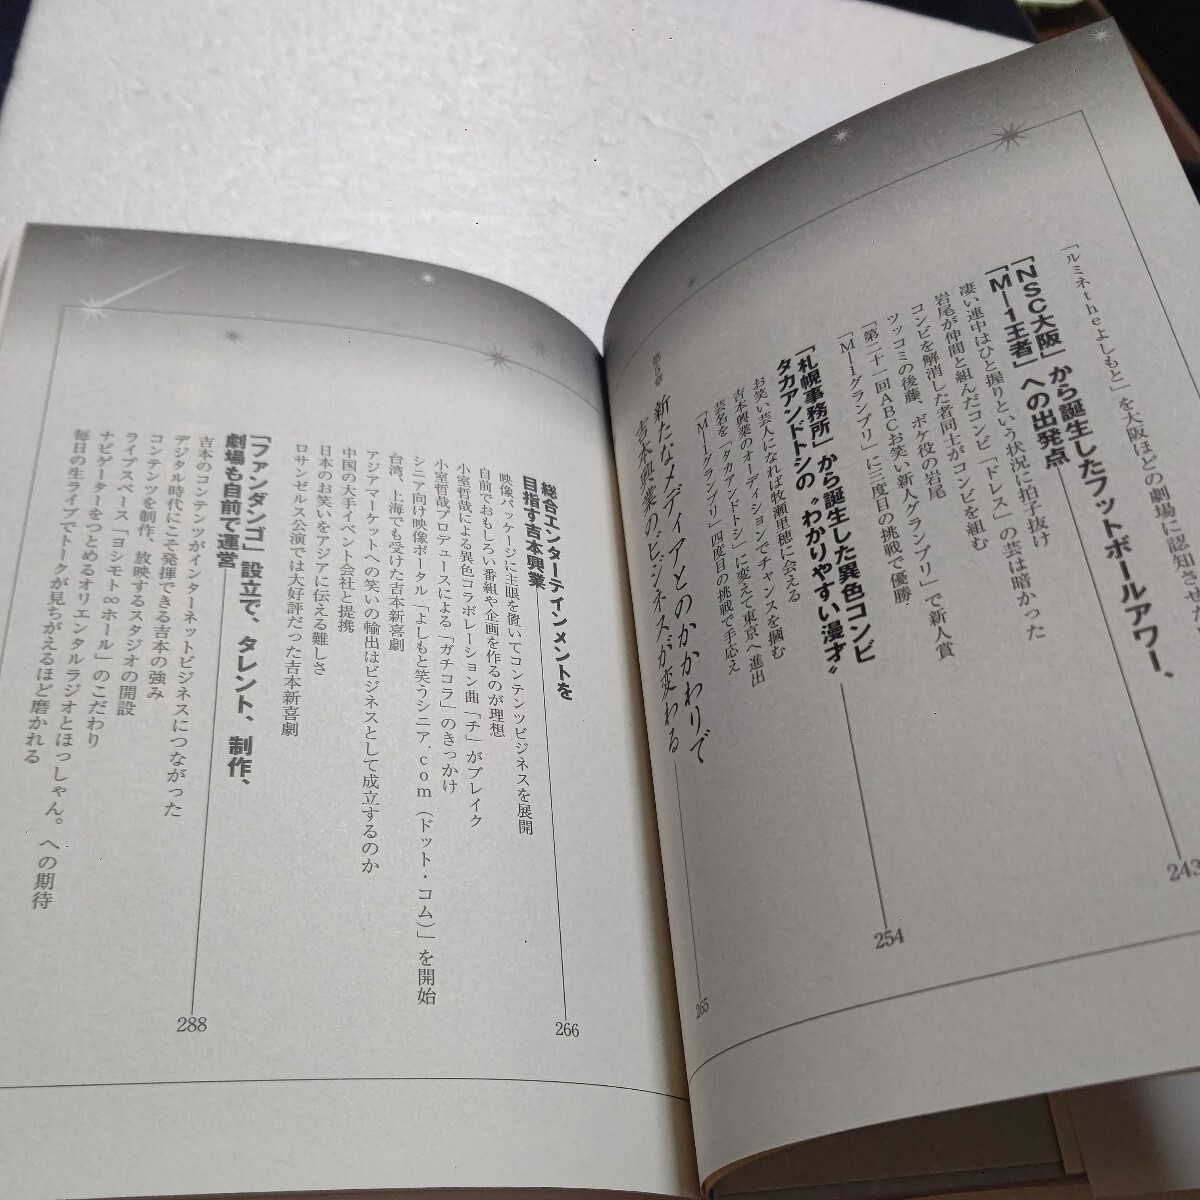 「ルミネtheよしもと」を大阪ほどの劇場に認知させ
「NSC大阪」から誕生したフットボールアワー、
「M―1王者」への出発点
243
凄い連中はひと握りという状況に拍子抜け
岩尾が仲間と組んだコンビ「ドレス」の芸は暗かった
コンビを解消した者同士がコンビを組む
ツッコミの後藤、ボケ役の岩尾
「第二十一回ABCお笑い新人グランプリ」で新人賞
「M―1グランプリ」に三度目の挑戦で優勝
「札幌事務所」から誕生した異色コンビ
タカアンドトシの〝わかりやすい漫才〟
254
お笑い芸人になれば牧瀬里穂に会える
吉本興業のオーディションでチャンスを掴む
芸名を「タカアンドトシ」に変えて東京へ進出
「M―1グランプリ」四度目の挑戦で手応え
新たなメディアとのかかわりで
吉本興業のビジネスが変わる
265
総合エンターテインメントを
目指す吉本興業
266
映像パッケージに主眼を置いてコンテンツビジネスを展開
自前でおもしろい番組や企画を作るのが理想
小室哲哉による異色コラボレーション曲「チ」がブレイク
小室哲哉プロデュースによる「ガチコラ」のきっかけ
シニア向け映像ポータル「よしもと笑うシニア.com(ドット・コム)」を開始
台湾、上海でも受けた吉本新喜劇
アジアマーケットへの笑いの輸出はビジネスとして成立するのか
中国の大手イベント会社と提携
日本のお笑いをアジアに伝える難しさ
ロサンゼルス公演では大好評だった吉本新喜劇
「ファンダンゴ」設立で、タレント、制作、
劇場も自前で運営
288
吉本のコンテンツがインターネットビジネスにつながった
デジタル時代にこそ発揮できる吉本の強み
コンテンツを制作、放映するスタジオの開設
ライブスペース「ヨシモト∞ホール」のこだわり
ナビゲーターをつとめるオリエンタルラジオとほっしゃん。への期待
毎日の生ライブでトークが見ちがえるほど磨かれる